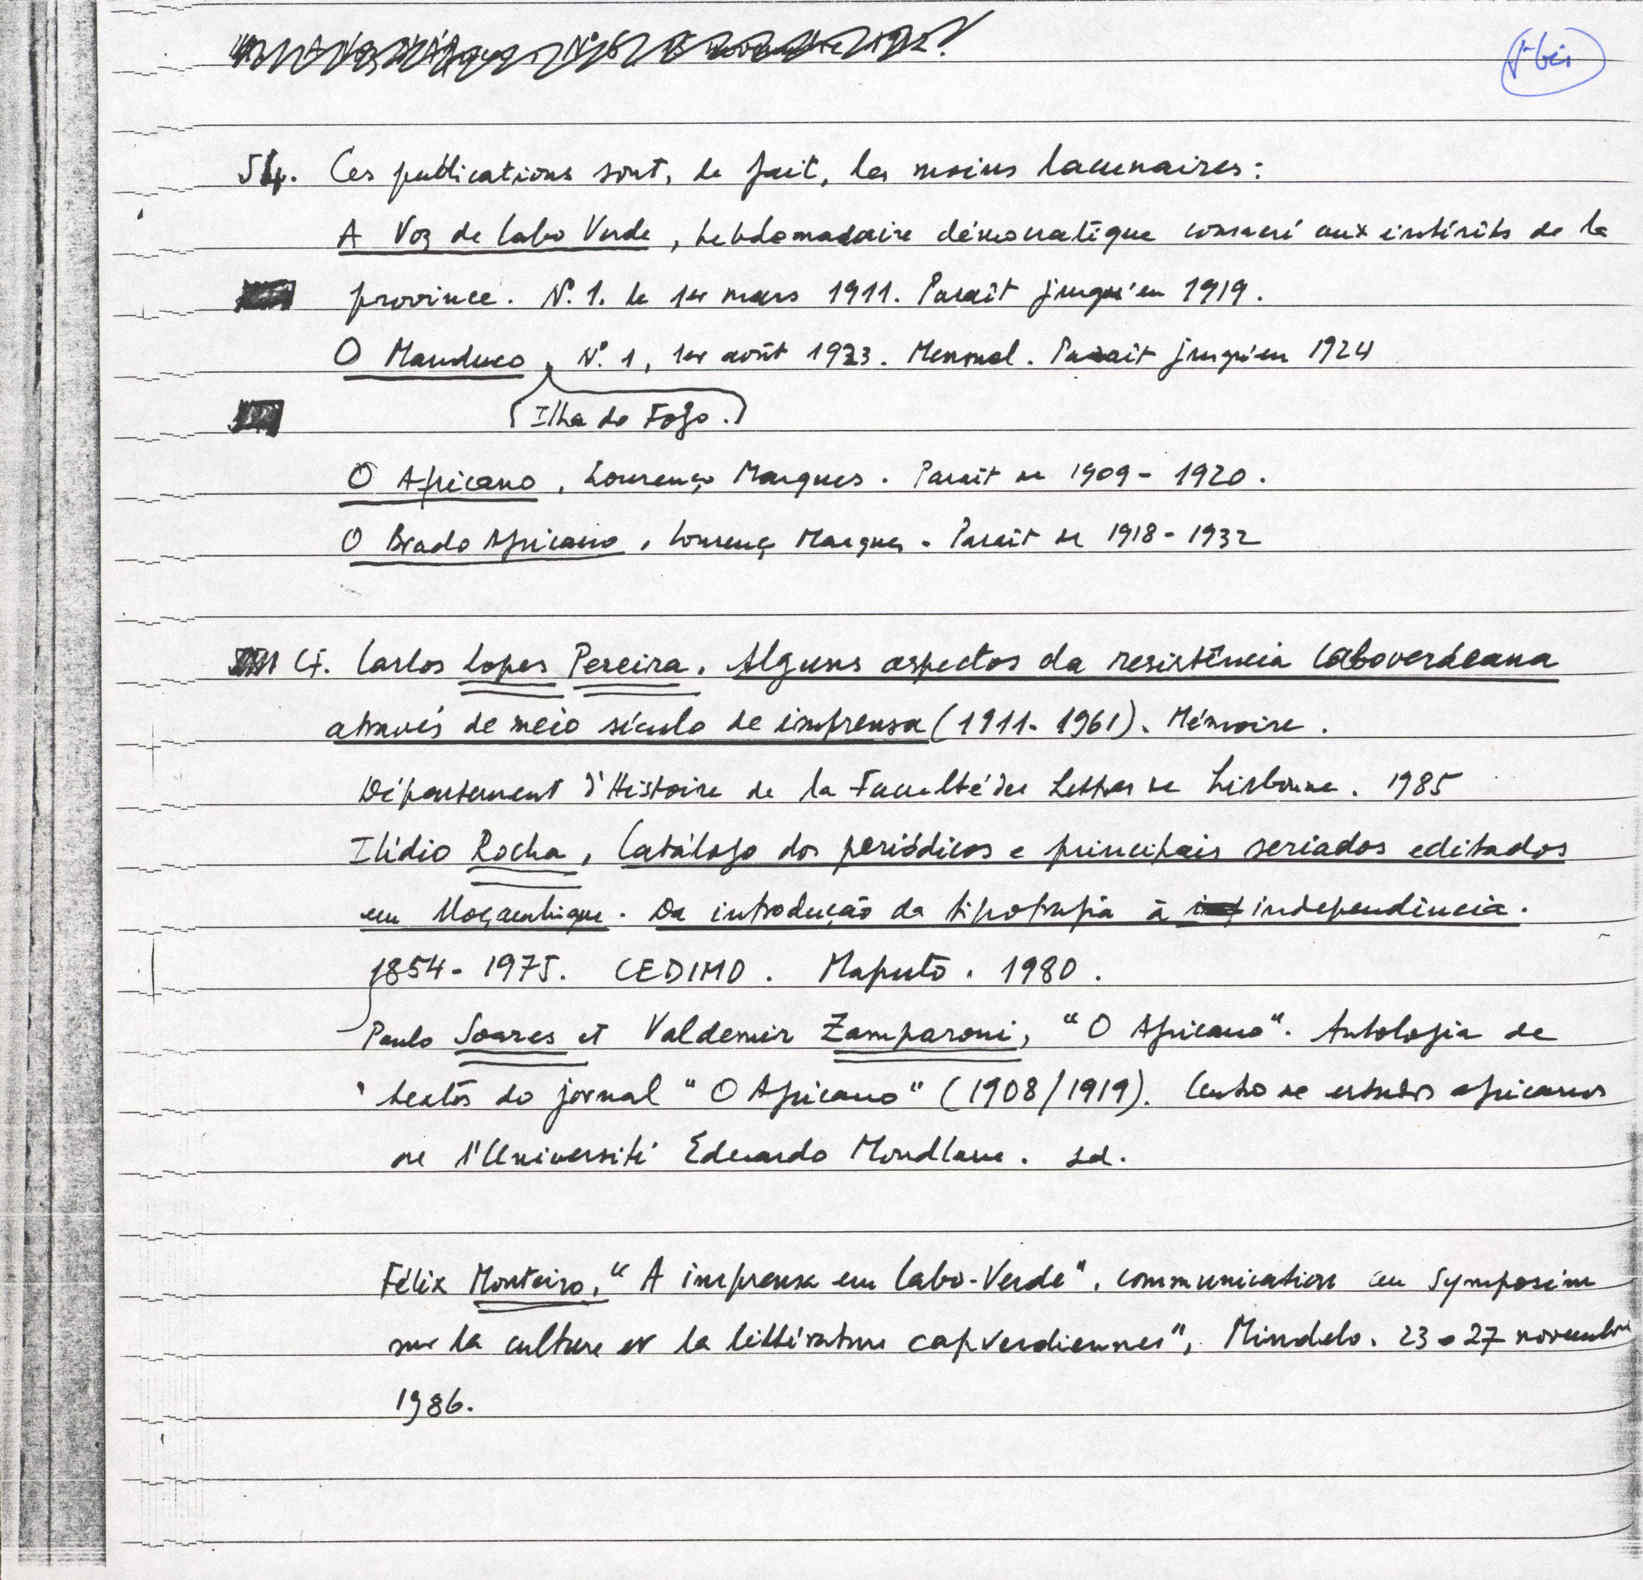 bis
54. Ces publications sont, de fait, les moins lacunaires :
A Voz de Cabo Verde, hebdomadaire démocratique consacré aux intérêts de la
province. N°. 1. le 1er mars 1911. Paraît jusqu'en 1919.
O Manduco, N°. 1, 1er août 1923. Mensuel. Paraît jusqu'en 1924
(Ilha do Fogo.)
O Africano, Lourenço Marques. Paraît de 1909 - 1920.
O Brado Africano, Lourenço Marques. Paraît de 1918 - 1932
Cf. Carlos Lopes Pereira. Alguns aspectos da resistência caboverdeana
através de meio século de imprensa (1911 - 1961). Mémoire.
Département d'Histoire de la Faculté des Lettres de Lisbonne. 1985
Ilídio Rocha, Catálogo dos periódicos e principais seriados editados
em Moçambique. Da introdução da tipografia à independência.
1854 - 1975. CEDIMO. Maputo. 1980.
Paulo Soares et Valdemir Zamparoni, "O Africano". Antologia de
textos do jornal "O Africano" (1908/1919). Centro de estudos africanos
de l'Université Eduardo Mondlane. sd.
Félix Monteiro, "A imprensa em Cabo-Verde", communication au Symposium
sur la culture et la littérature capverdiennes", Mindelo. 23 a 27 novembre
1986.